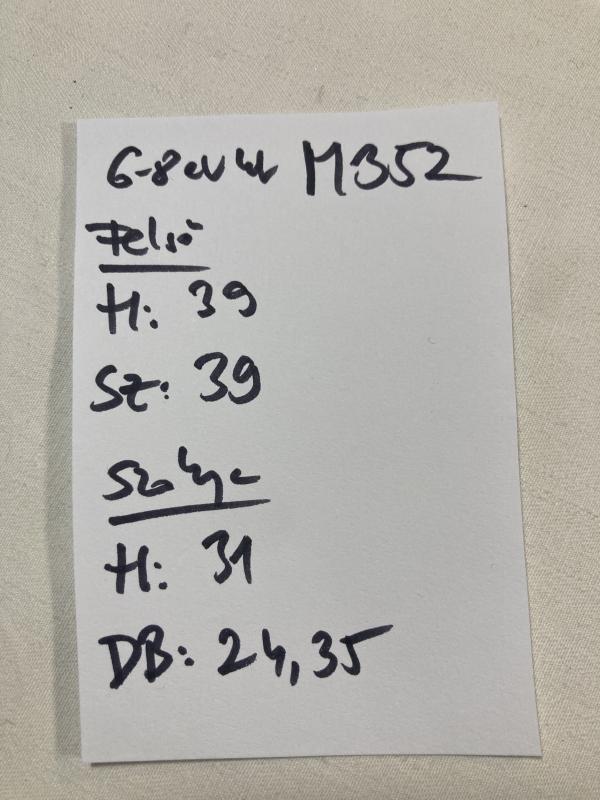 6-8 év M352
Felső
H: 39
Sz: 39
Szoknya
H: 31
DB: 24,35